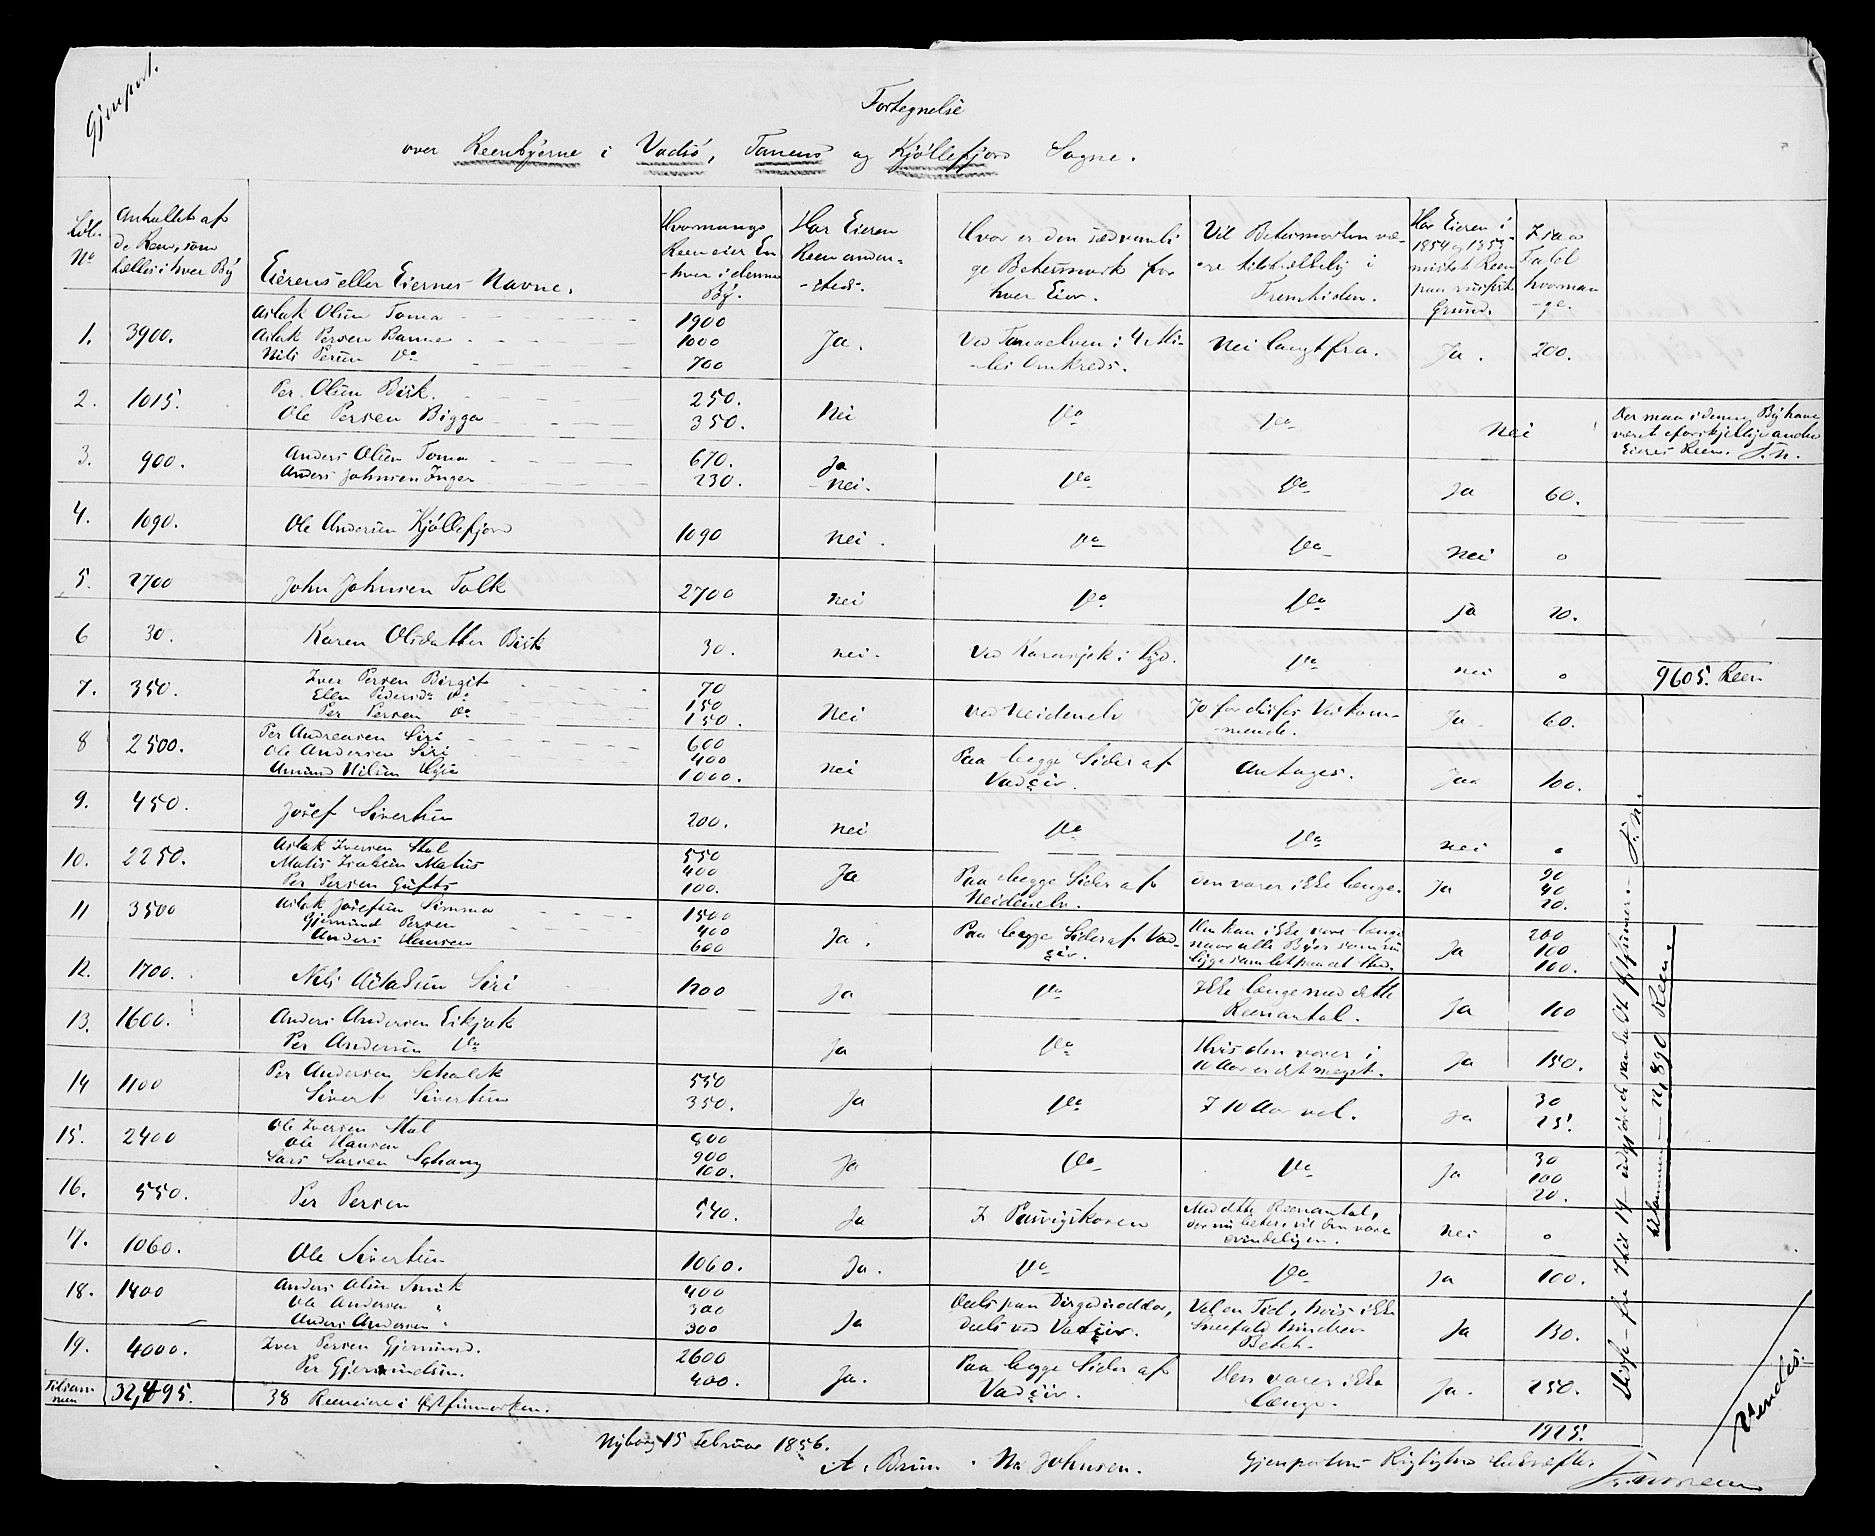 Gjenpart.
Fortegnelse
over Reenbyerne i Vadsö, Tanens og Kjöllefjord Sogne.
Löbe No
Antallet af de Reen, som hælles i hver By
Eierens eller Eiernes Navne.
Hvormange Reen eier Enhver i denne By.
Har Eieren Reen andensteds.
Hvor er den sædvanlige Betesmark for hver Eier.
Vil Betesmarken være tilstrækkelig i Fremtiden.
Har Eieren i 1854 og 1855 mistet Reen paa russisk Grund.
I saa Fald hvormange.
1. 3900. Aslak Olsen Toma 1900 Ja. Ved Tanaelven i 4 Miles Omkreds. Nei langtfra. Ja. 200.
Aslak Persen Banne 1000
Nils Persen Do 700
2. 1015. Per Olsen Bisk. 250. Nei Do Do Nei Der maa i denne By have
Ole Persen Bigga 350. været forskjellige andre
Eieres Reen. T.N.
3. 900. Anders Olsen Toma 670. Ja Do Do Ja 60.
Anders Johnsen Inger 230. Nei.
4. 1090. Ole Andersen Kjöllefjord 1090 Nei. Do Do Nei 0
5. 2700 John Johnsen Talk 2700 Nei Do Do Ja 20.
6 30. Karen Olsdatter Bisk 30. Nei. Ved Karasjok i Syd. Do Nei 0
9605. Reen
7. 350. Iver Persen Birgit 70 Nei Ved Neidenelv Jo for disses Vedkommende. Ja 60.
Ellen Pedersdr Do 150
Per Persen Do 150.
8 2500. Per Andreasen Siri 600 Nei Paa begge Sider af Antages. Jaa 100.
Ole Andersen Siri 400 Vadseiv.
Amund Nilsen 1000.
9. 450. Josef Sivertsen 200. Nei Do Do Nei 0
10. 2250. Aslak Iversen Stal 550 Ja Paa begge Sider af Den varer ikke længe. Ja 90
Matis Isaksen Matius 400 Neidenelv. 40
Per Persen Gufts 100. 20.
11 3500 Aslak Josefsen Simma 1500 Ja. Paa begge Sider af Vadseiv. Den kan ikke vare længe Ja 200
Gjermund Persen 400 naar alle Byer som nu 100
Anders Hansen 600 ligge samlet paa et Sted. 100.
12. 1700. Nils Aslaksen Siri 1200 Ja Do Ikke længe med dette Reenantal. Ja 100
13. 1600. Anders Andersen Eikjok Ja Do Hvis den varer i Ja 150.
Per Andersen Do 10 Aar er det meget.
14 1100 Per Andersen Schalok 550 Ja Do I 10 Aar vel. Ja 30
Sivert Sivertsen 350. 25.
15. 2400 Ole Iversen Stal 800 Ja Do Do Ja 30
Ole Hansen 900 100
Lars Larsen 100. 20.
16. 550. Per Persen 540. Ja I Pasvigskoven Med dette Reenantal, Nei 0
der nu beter, vil den vare
evindeligen.
17. 1060. Ole Sivertsen 1060. Ja. Do Do Ja 100.
18. 1400 Anders Olsen Smuk 400 Ja Dels paa Vel en Tid, hvis ikke Ja 130.
Ole Andersen " 300 dels ved Vadseiv. Sneefald hindrer
Anders Andersen " 300 Betet.
19. 4000. Iver Persen Gjermund. 2600 Ja. Paa begge Sider af Den varer ikke Ja. 250.
Per Gjermundsen. 400. Vadseiv. længe.
Tilsammen 32,495. 38 Reeneiere i Östfinmarken. 1925.
Disse – fra 7 til 19 – T.N.
tilsammen – 22,890 Reen.
Nyborg 15 Februar 1856.
A. Brun. Ns Johnsen.
Gjenpartens Rigtighed bekræfter
Vendes.